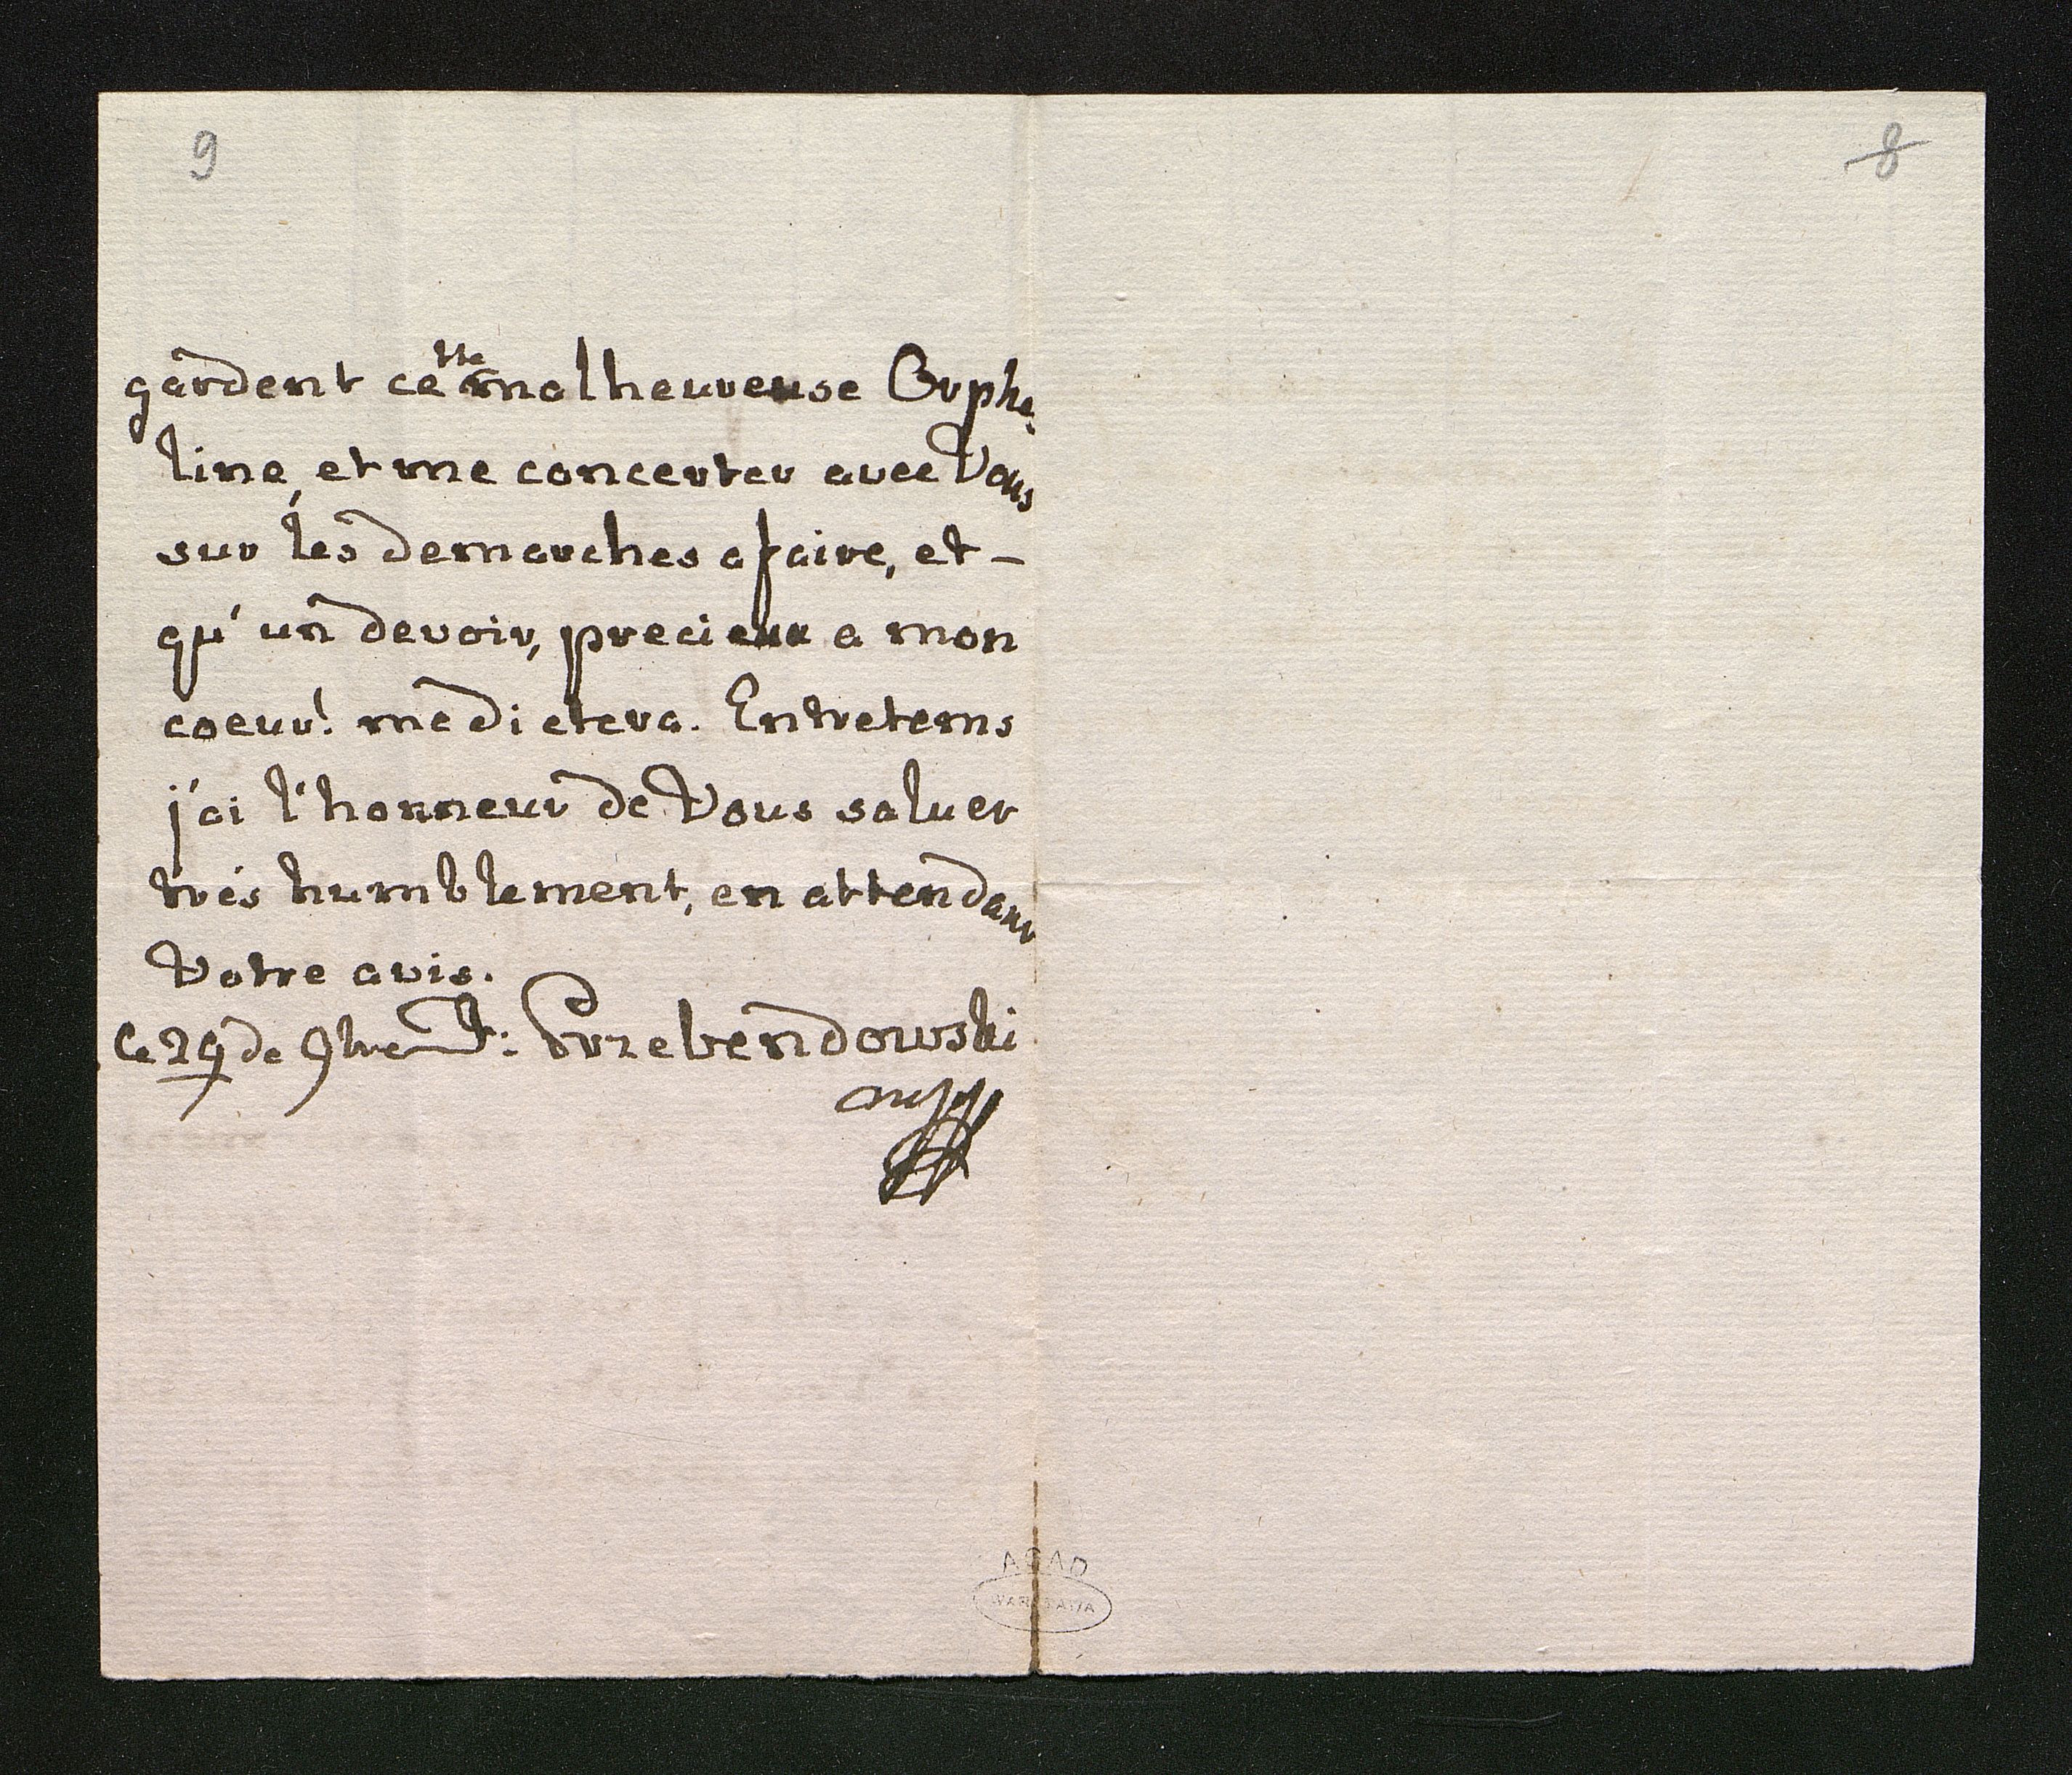 9
8
gardent cette malheureuse Orphe-
line, et me concerter avec Vous
sur les demarches a faire, et -
qu'un devoir, precieux a mon
coeur! me dictera. Entretems
j'ai l'honneur de Vous saluer
trés humblement, en attendant
Votre avis.
Ce 29 de 9bre Przebendowski
AGAD
WARSZAWA